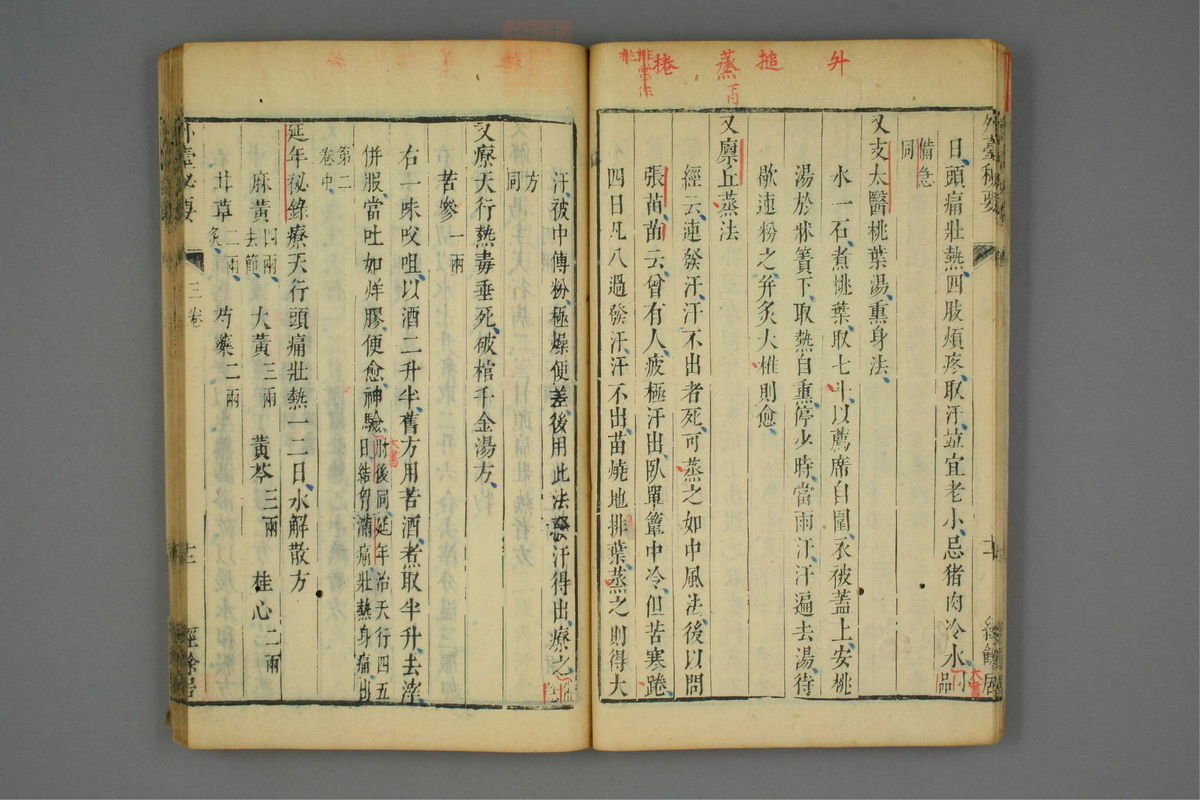 升
搥
蒸
捲
外臺秘要
日頭痛壯熱四肢煩疼取汗竝宜老小忌猪肉冷水小品
備急同
又支太醫桃葉湯熏身法
水一石煮桃葉取七斗以薦席自圍衣被蓋上安桃
湯於牀簀下取熱自熏停少時當雨汗汗遍去湯待
歇速粉之并灸大椎則愈
又廪丘蒸法
經云連發汗汗不出者死可蒸之如中風法後以問
張苗苗云曾有人疲極汗出臥單簟中冷但苦寒踡
四日凡八過發汗汗不出苗燒地排葉蒸之則得大
汗被中傅粉極燥便差後用此法發汗得出療之備急
方同
又療天行熱毒垂死破棺千金湯方
苦參一兩
右一味㕮咀以酒二升半舊方用苦酒煮取半升去滓
併服當吐如烊膠便愈神驗肘後同延年治天行四五日結胷滿痛壯熱身痛出
第二卷中
延年秘錄療天行頭痛壯熱一二日水解散方
麻黃四兩去節 大黃三兩 黃芩三兩 桂心二兩
甘草二兩炙 芍藥二兩
外臺秘要 三卷 十二 經餘居